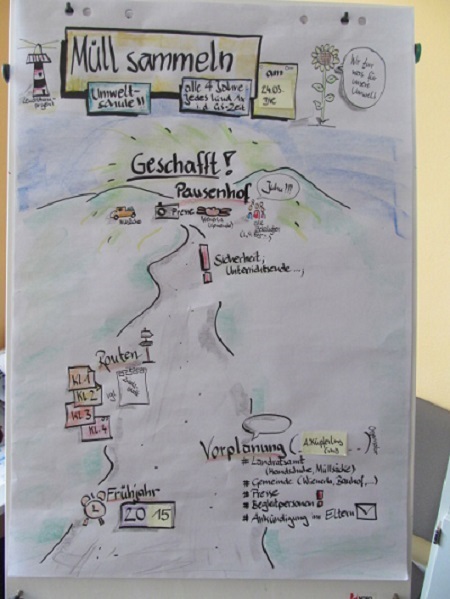 Müll sammeln
Umwelt-
schule!!
alle 4 Jahre
jedes Kind 1x
in d. GS-Zeit
24.03.
Wir tun
was für
unsere
Umwelt
Geschafft!
Pausenhof
Juhu!!!
Presse
Sicherheit,
Unterrichtsende...,
Routen
KL.1
KL.2
KL.3
KL.4
vgl.
Vorplanung (
# Landratsamt
(Handschuhe, Müllsäcke)
# Gemeinde (Wienerle, Bauhof,...)
# Presse
# Begleitpersonen
# Ankündigung an Eltern
Frühjahr
2015